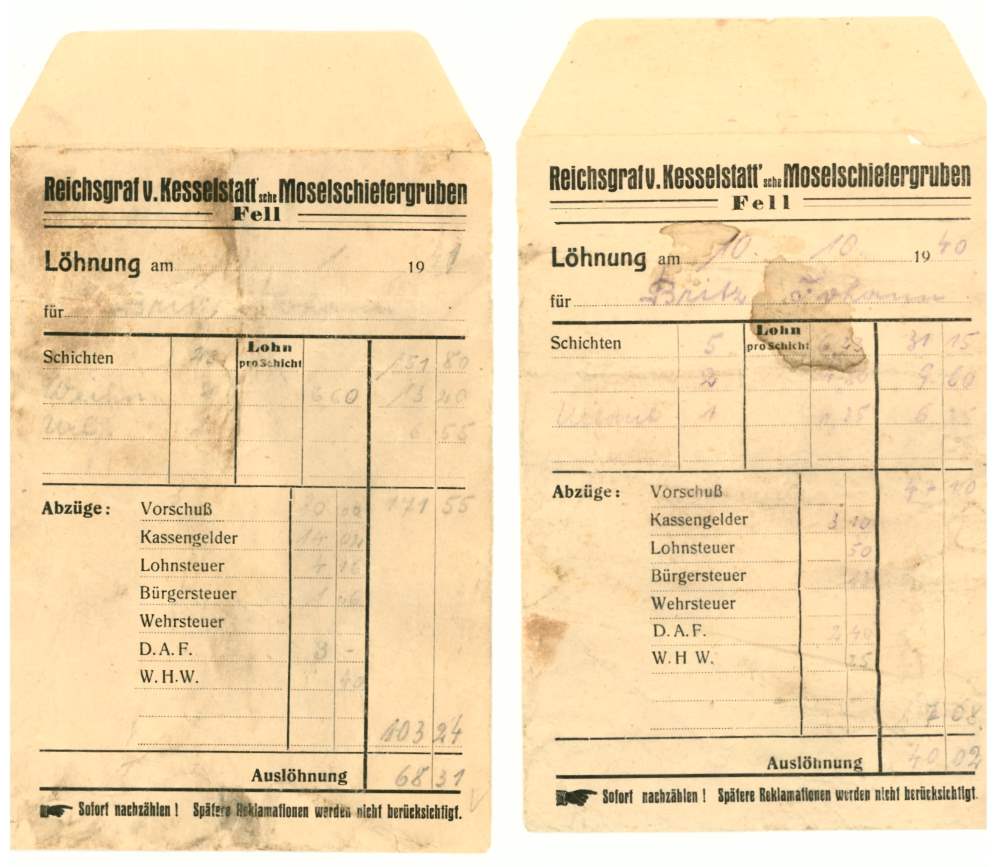 Reichsgraf v. Kesselstatt'sche Moselschiefergruben
Fell
Löhnung am 19 41
für Britz Johann
Schichten 23 Lohn pro Schicht 151 80
6 60 13 20
6 55
Abzüge: Vorschuß 171 55
Kassengelder
Lohnsteuer
Bürgersteuer
Wehrsteuer
D.A.F. 3 -
W.H.W. 40
103 24
Auslöhnung 68 31
Sofort nachzählen! Spätere Reklamationen werden nicht berücksichtigt.
Reichsgraf v. Kesselstatt'sche Moselschiefergruben
Fell
Löhnung am 10. 10. 19 40
für Britz Johann
Schichten 5 Lohn pro Schicht 6 23 31 15
2 9 60
1 6 25
Abzüge: Vorschuß 47 10
Kassengelder 3
Lohnsteuer 50
Bürgersteuer
Wehrsteuer
D.A.F. 2 40
W.H.W.
7 08
Auslöhnung 40 02
Sofort nachzählen! Spätere Reklamationen werden nicht berücksichtigt.